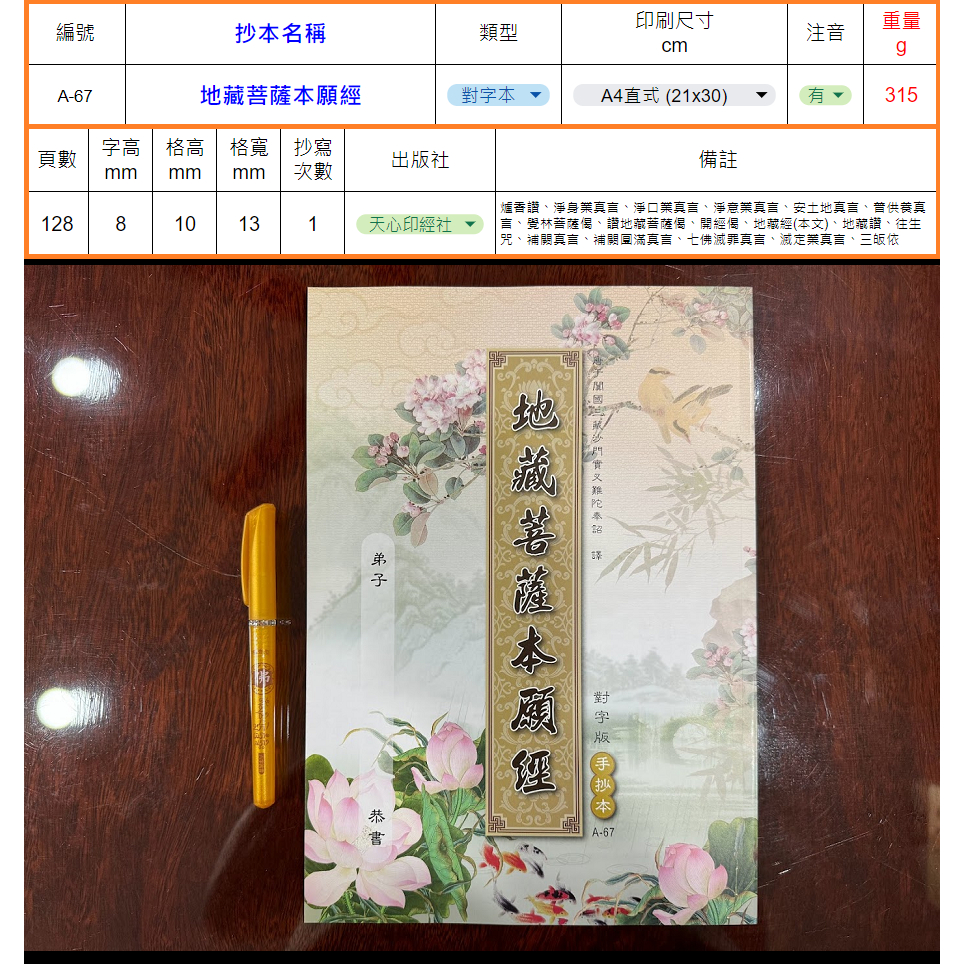 編號
抄本名稱
類型
印刷尺寸
cm
注音
重量
g
A-67
地藏菩薩本願經
對字本
A4直式 (21x30)
有
315
頁數
字高
mm
格高
mm
格寬
mm
抄寫
次數
出版社
備註
128
8
10
13
1
天心印經社
爐香讚、淨身業真言、淨口業真言、淨意業真言、安土地真言、普供養真
言、覺林菩薩偈、讚地藏菩薩偈、開經偈、地藏經(本文)、地藏讚、往生
咒、補闕真言、補闕圓滿真言、七佛滅罪真言、滅定業真言、三皈依
于闐國三藏沙門實叉難陀奉詔 譯
地藏菩薩本願經
弟子
恭書
對字版
手抄本
A-67
佛